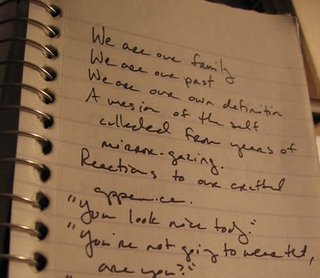 We are our family
We are our past
We are our own definition
A version of the self
culled from years of
mirror-gazing.
Reactions to our crafted
appearance.
"You look nice today."
"You're not going to wear that,
are you?"